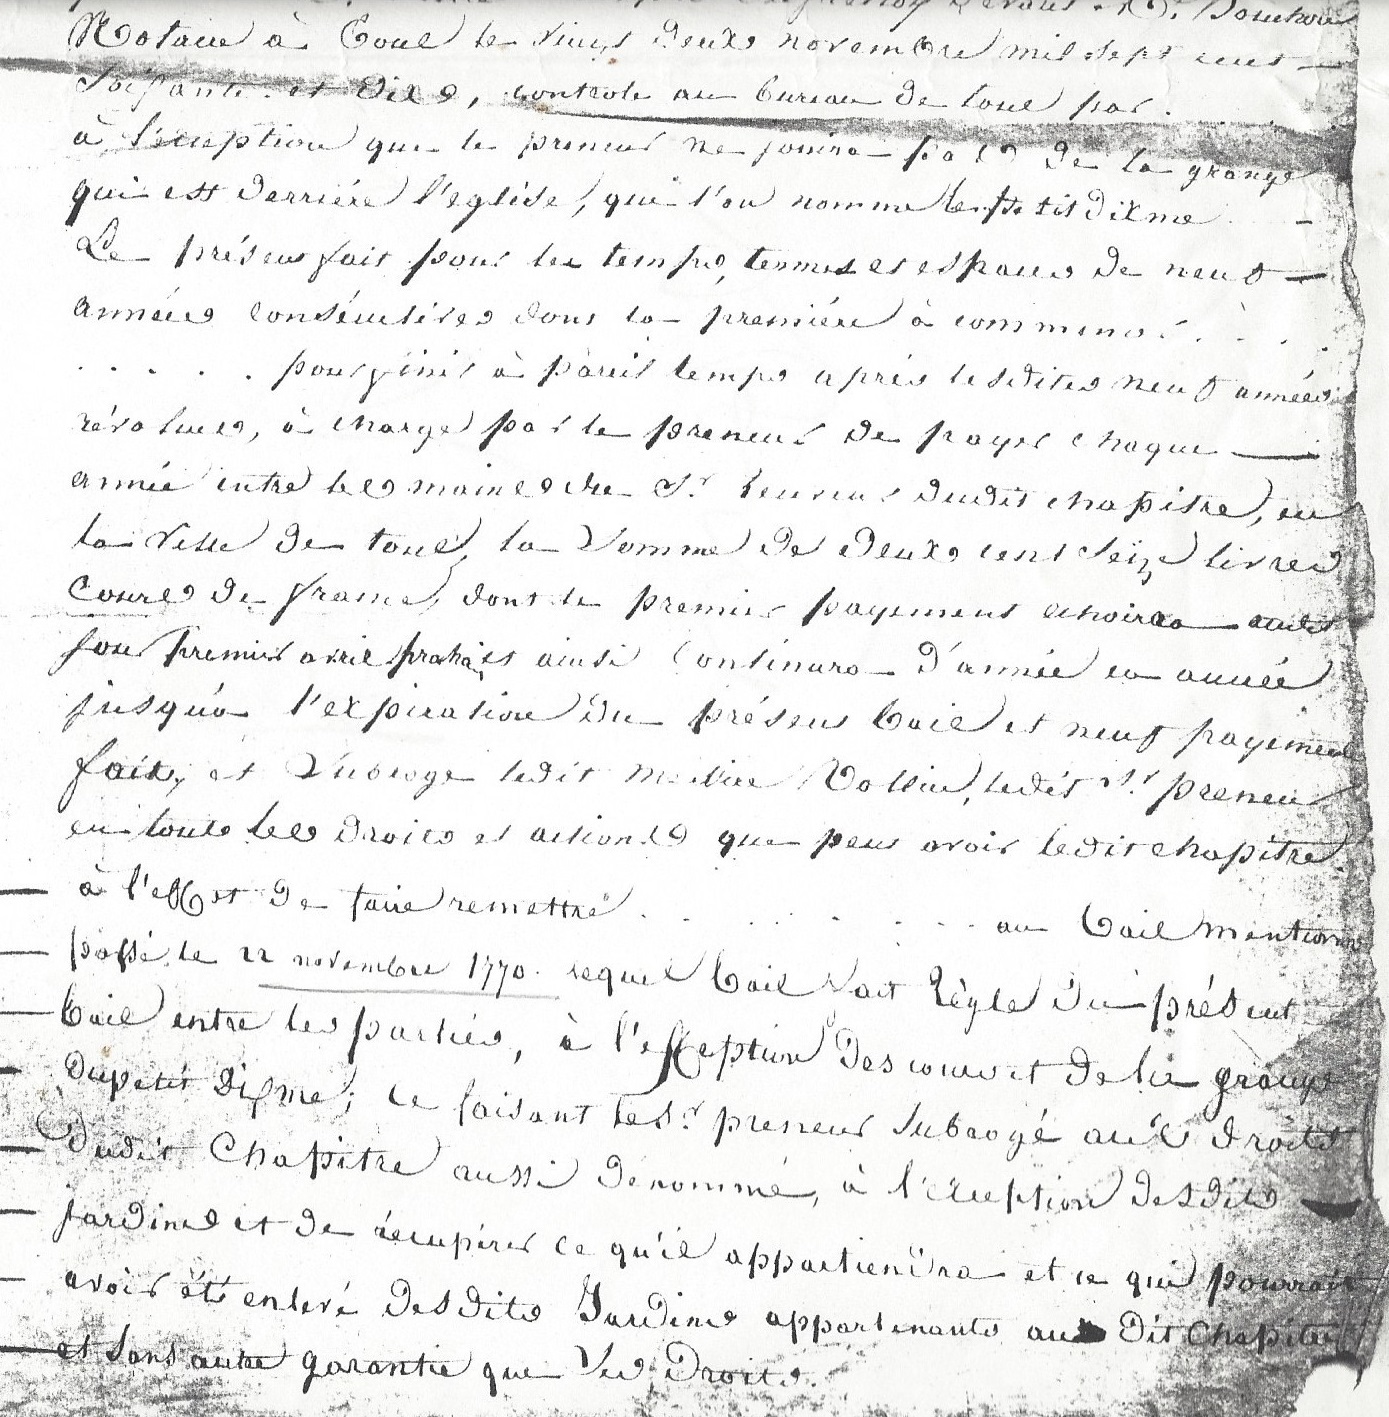 Notaire à Toul le vingt deux novembre mil sept cent
Soissante et Dix, controlé au bureau de toul par .
à l'éception que le preneur ne jouira pas de la grange
qui est derrière l'eglise, que l'on nomme le petit dixme
Le présent fait pour le temps, termes et espaces de neuf
années consécutives dont la première à commencer . . . .
. . . . . pour finir à pareil temps après lesdites neuf années
révolues, à charge par le preneur de payer chaque
année entre les mains du Sr receveur dudit chapitre, en
la ville de toul, la somme de deux cent seize livres
cours de france, dont le premier payement echoira audit
jour premier avril et ainsi continura d'année en année
jusqu'a l'expiration du présent bail et neuf payement
fait, et subroge ledit Rollin, ledit Sr preneur
en toute les droits et actions que peut avoir ledit chapitre.
à l'effet de faire remettre . . . . . . au bail mentionné
passé le 22 novembre 1770. lequel bail sait règle du présent
bail entre les parties, à l'exception des et de la grange
du petit dixme; ce faisant le Sr preneur subrogé aux droits
dudit Chapitre aussi denommé, à l'éxception desdits
jardins et de récupérer ce qu'il appartiendra et ce qui pourrait
avoir été enlevé desdits Jardins appartenants au dit Chapitre
et sans autre garantie que ses Droits.